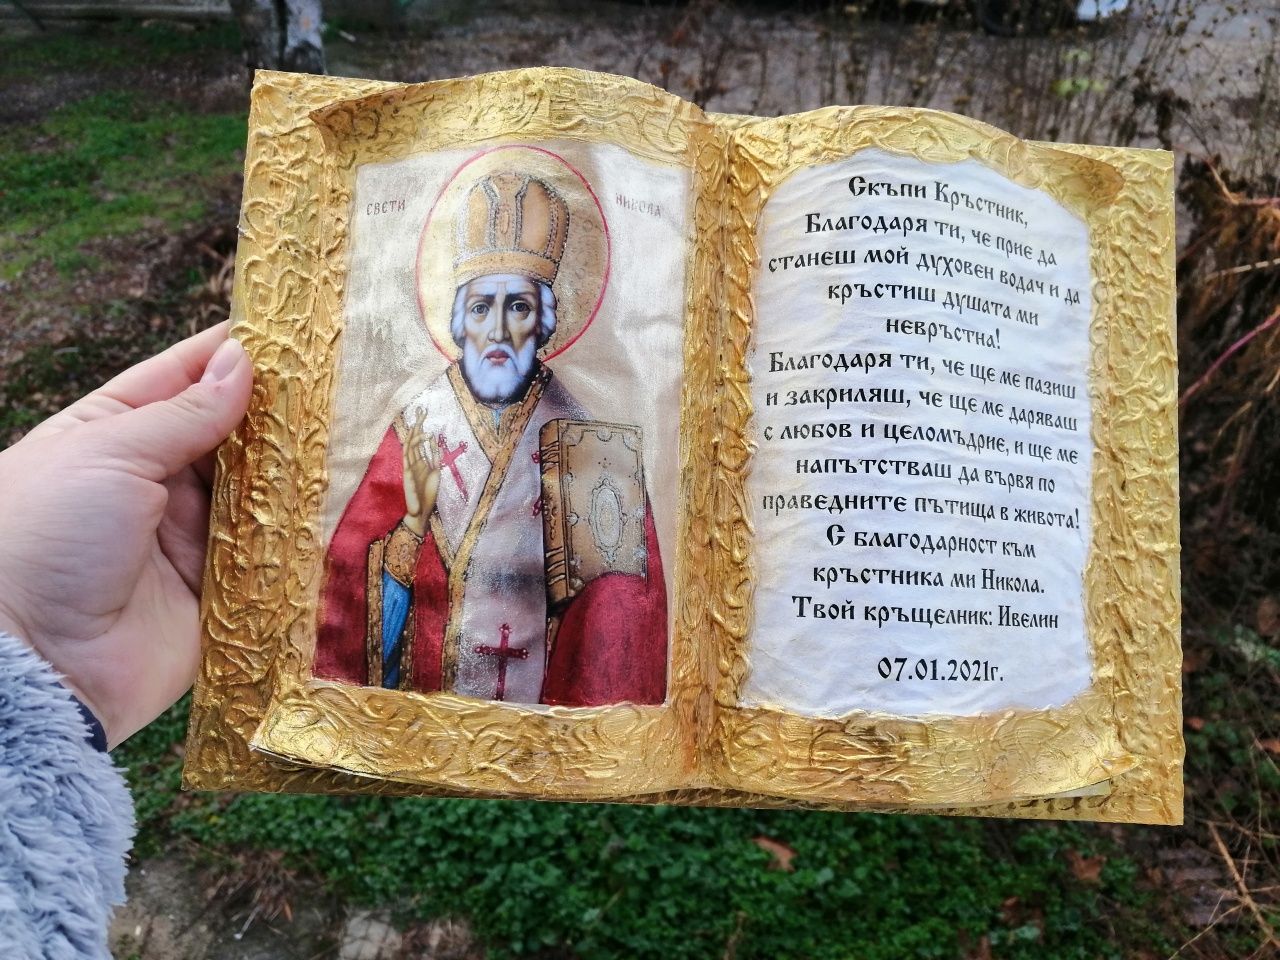 СВЕТИ НИКОЛА
Скъпи Кръстник,
Благодаря ти, че прие да
станеш мой духовен водач и да
кръстиш душата ми
невръстна!
Благодаря ти, че ще ме пазиш
и закриляш, че ще ме даряваш
с любов и целомъдрие, и ще ме
напътстваш да вървя по
праведните пътища в живота!
С благодарност към
кръстника ми Никола.
Твой кръщелник: Ивелин
07.01.2021г.